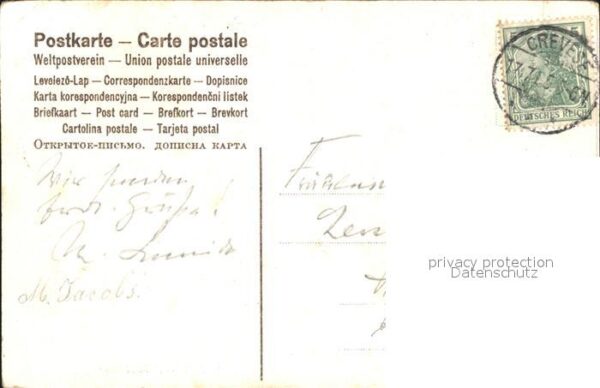 Postkarte — Carte postale
Weltpostverein — Union postale universelle
Levelező-Lap — Correspondenzkarte — Dopisnice
Karta korespondencyjna — Korespondenční listek
Briefkaart — Post card — Brefkort — Brevkort
Cartolina postale — Tarjeta postal
Открыток-письмо. дописна карта
CREFE
DEUTSCHES REICH
Wir senden
Grüße!
M. Jacobs.
Fräulein
privacy protection
Datenschutz